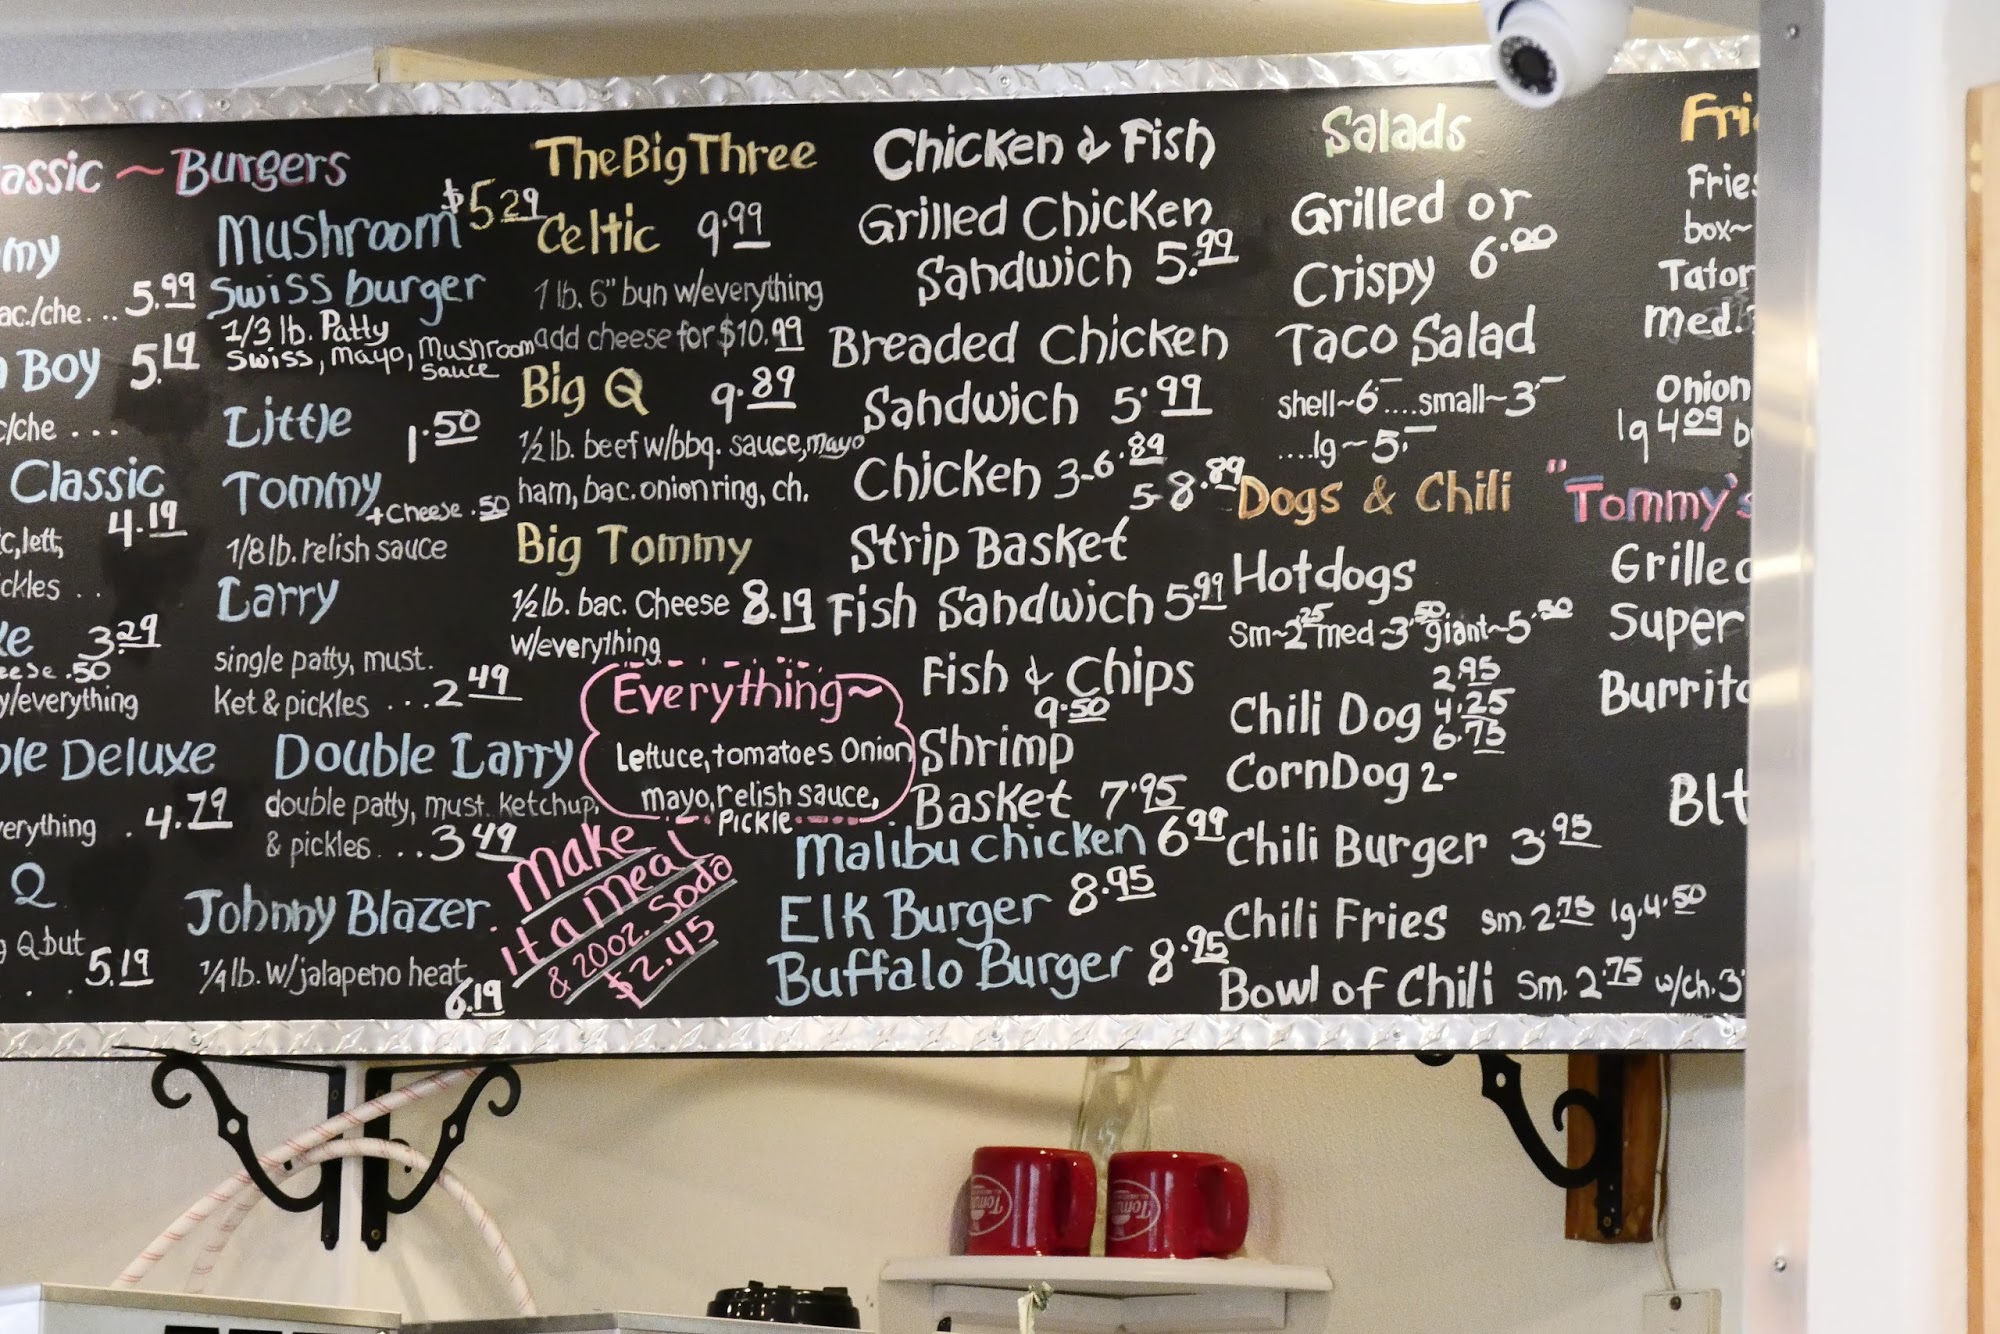 assic ~ Burgers
my
ac./che... 5.99
Boy 5.19
c/che ...
Classic
4.19
c, lett,
ickles ..
3.29
eese .50
y/everything
ble Deluxe
verything . 4.79
Q
Q but
. . . 5.19
Mushroom $5.29
Swiss burger
1/3 lb. Patty
Swiss, Mayo, Mushroom
Sauce
Little 1.50
Tommy
+ Cheese .50
1/8 lb. relish sauce
Larry
single patty, must.
Ket & pickles ...2.49
Double Larry
double patty, must. ketchup,
& pickles ...3.49
Johnny Blazer.
1/4 lb. w/jalapeno heat
6.19
The Big Three
Celtic 9.99
1 lb. 6" bun w/everything
add cheese for $10.99
Big Q 9.89
1/2 lb. beef w/bbq. sauce, mayo
ham, bac. onion ring, ch.
Big Tommy
1/2 lb. bac. Cheese 8.19
w/everything
Everything~
Lettuce, tomatoes Onion
mayo, relish sauce,
Pickle
Make
it a meal
& 20oz. Soda
$2.45
Chicken & Fish
Grilled Chicken
Sandwich 5.99
Breaded Chicken
Sandwich 5.99
Chicken 3-6.89
5-8.89
Strip Basket
Fish Sandwich 5.99
Fish & Chips
9.50
Shrimp
Basket 7.95
Malibu Chicken 6.99
Elk Burger 8.95
Buffalo Burger 8.95
Salads
Grilled or
Crispy 6.00
Taco Salad
shell~6.– ....small~3.–
....lg~5.–
Dogs & Chili
Hotdogs
Sm~2.25 med~3.50 giant~5.50
2.95
Chili Dog 4.25
6.75
Corn Dog 2-
Chili Burger 3.95
Chili Fries Sm. 2.75 lg. 4.50
Bowl of Chili Sm. 2.75 w/ch. 3
Fri
Fries
box~
Tator
Med.
Onion
lg 4.09 b
"Tommy's
Grille
Super
Burrito
Blt